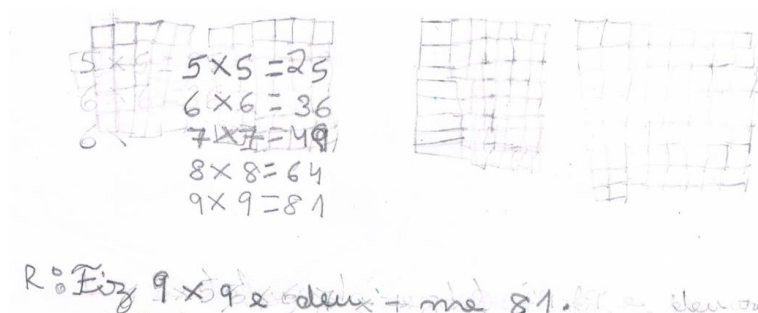 5 × 5 = 25
6 × 6 = 36
7 × 7 = 49
8 × 8 = 64
9 × 9 = 81
R: Fiz 9 × 9 e deu - me 81.